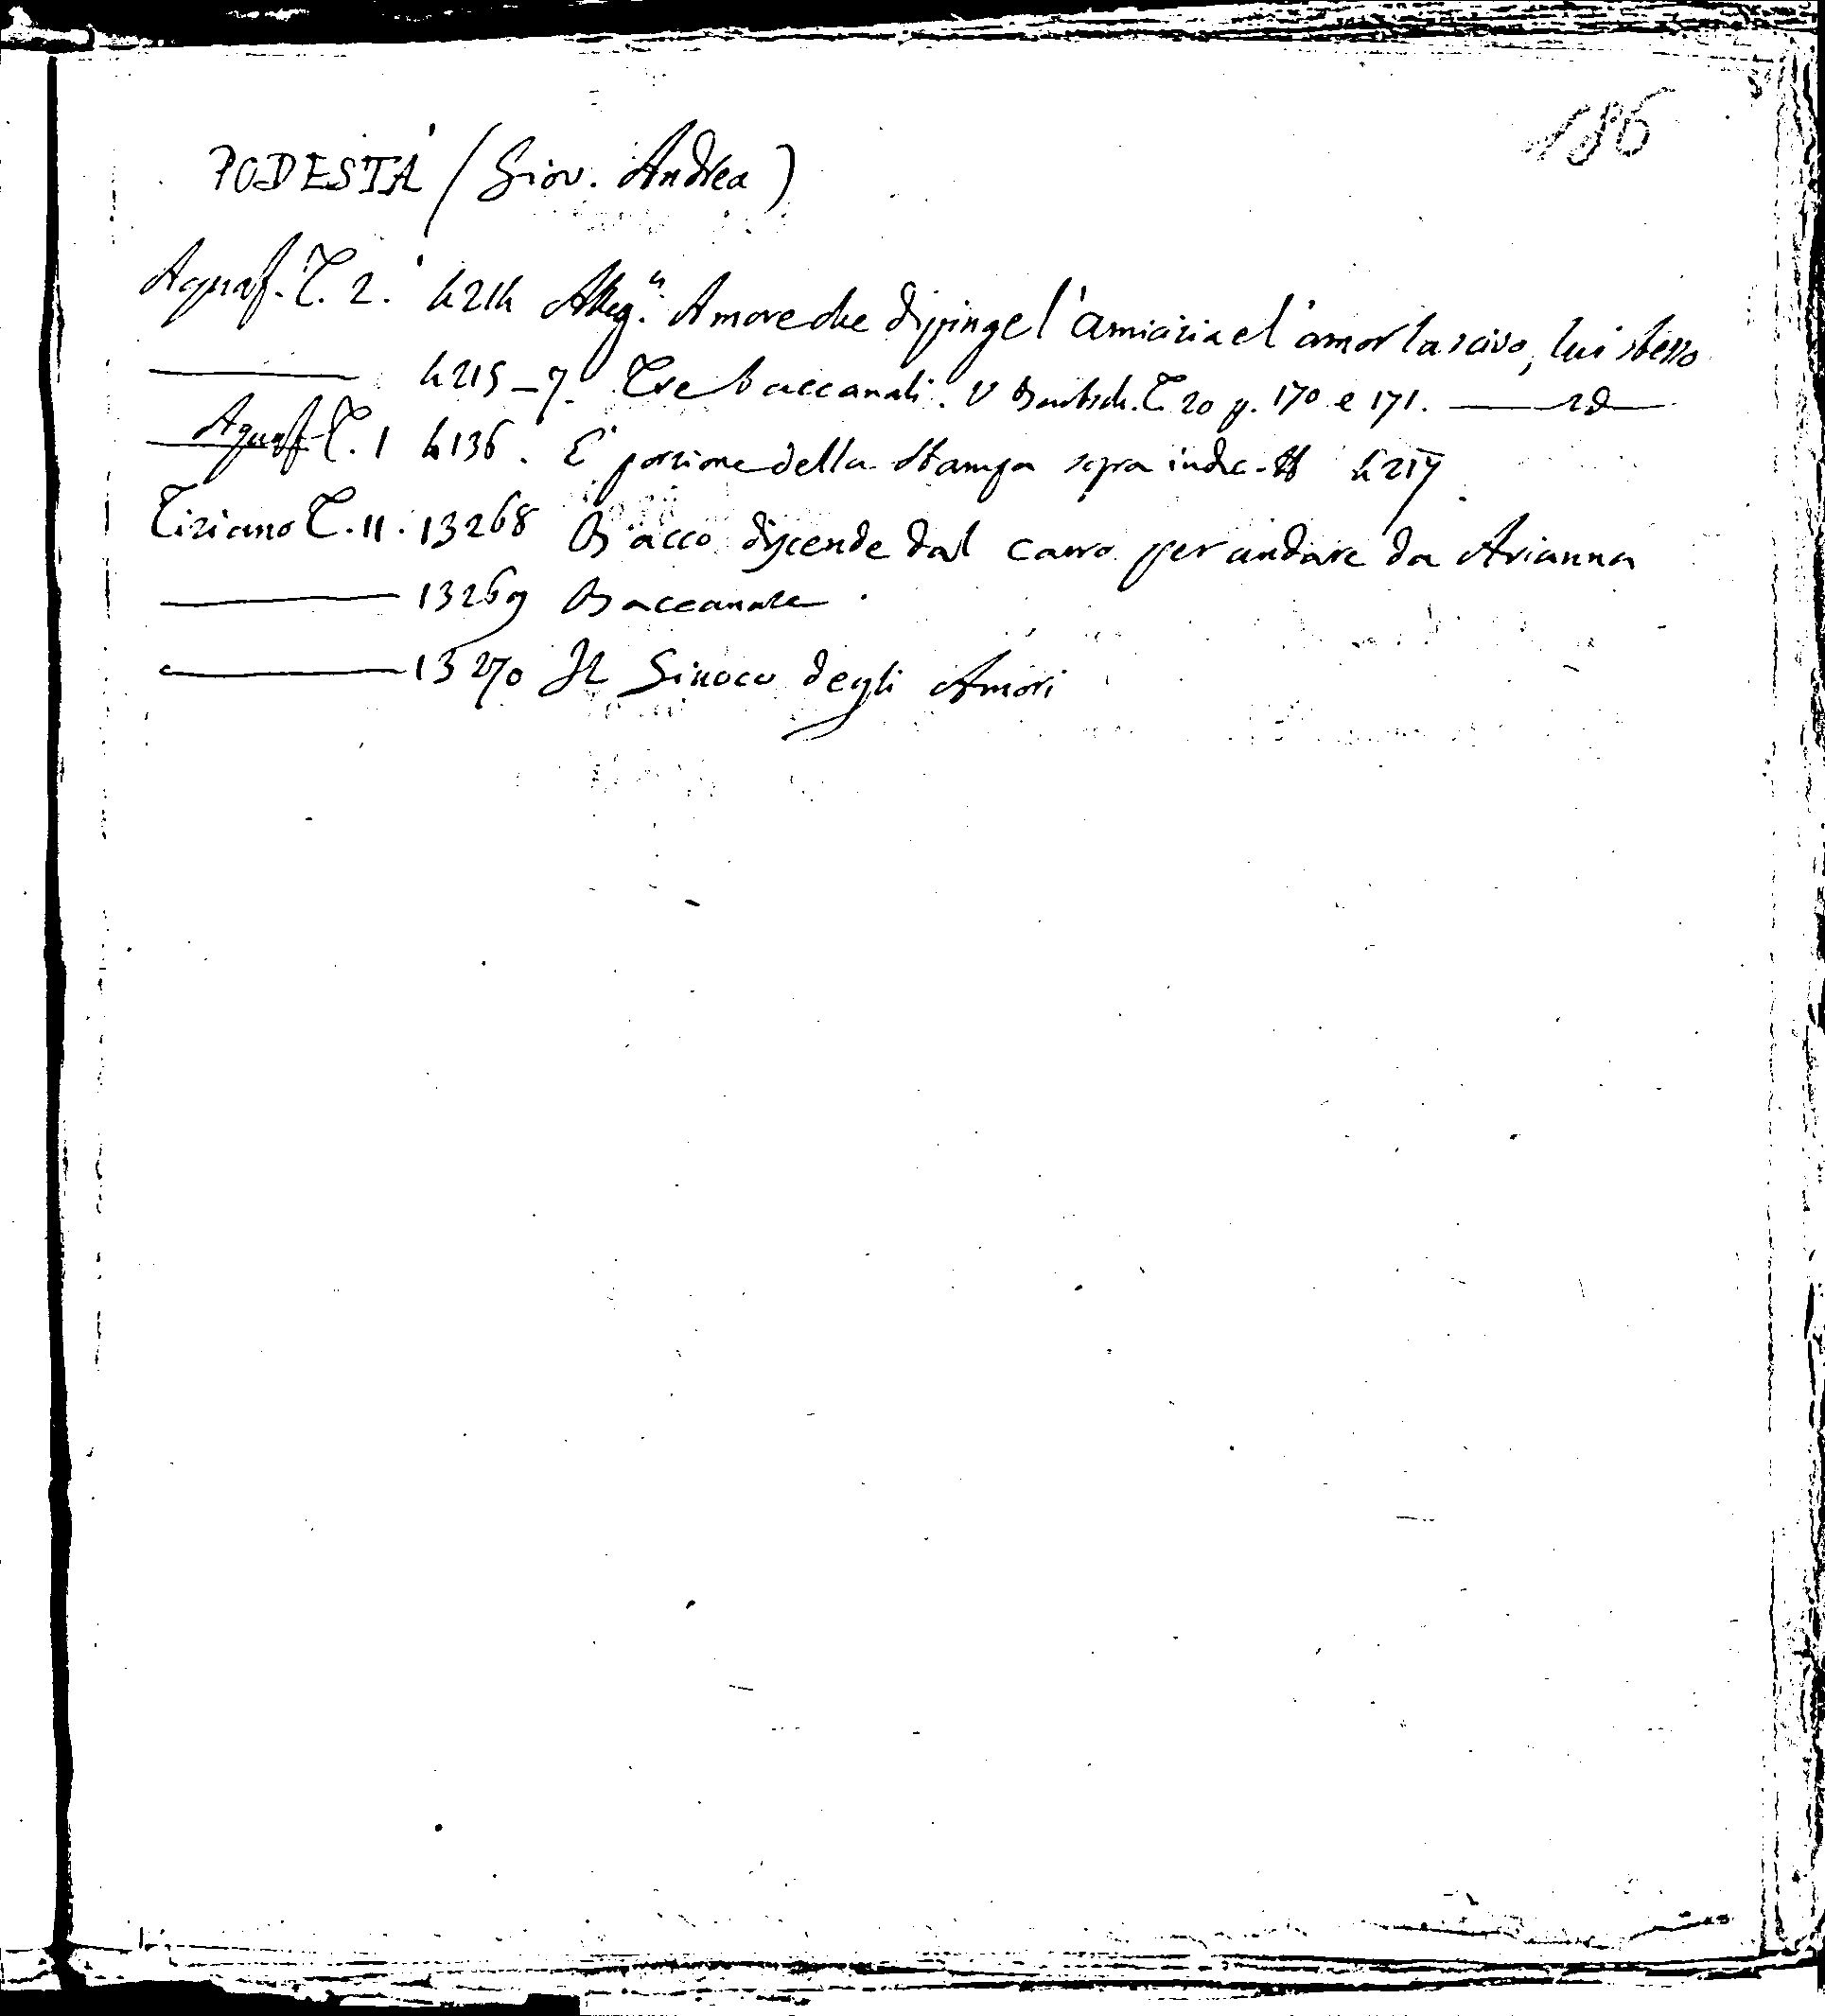 186
PODESTÀ (Giov. Andrea)
Aquaf. T. 2. 4214 Alleg.a Amore che dipinge l'amicizia e l'amor lascivo, lui stesso
——— 4215-7. Tre baccanali. V Bartsch. T. 20 p. 170 e 171. —— id ——
Aquaf. T. 1 4136. E' porzione della stampa sopra indic. 4217
Tiziano T. 11. 13268 Bacco discende dal carro per andare da Arianna
——— 13269 Baccanale.
——— 13270 Il Giuoco degli Amori